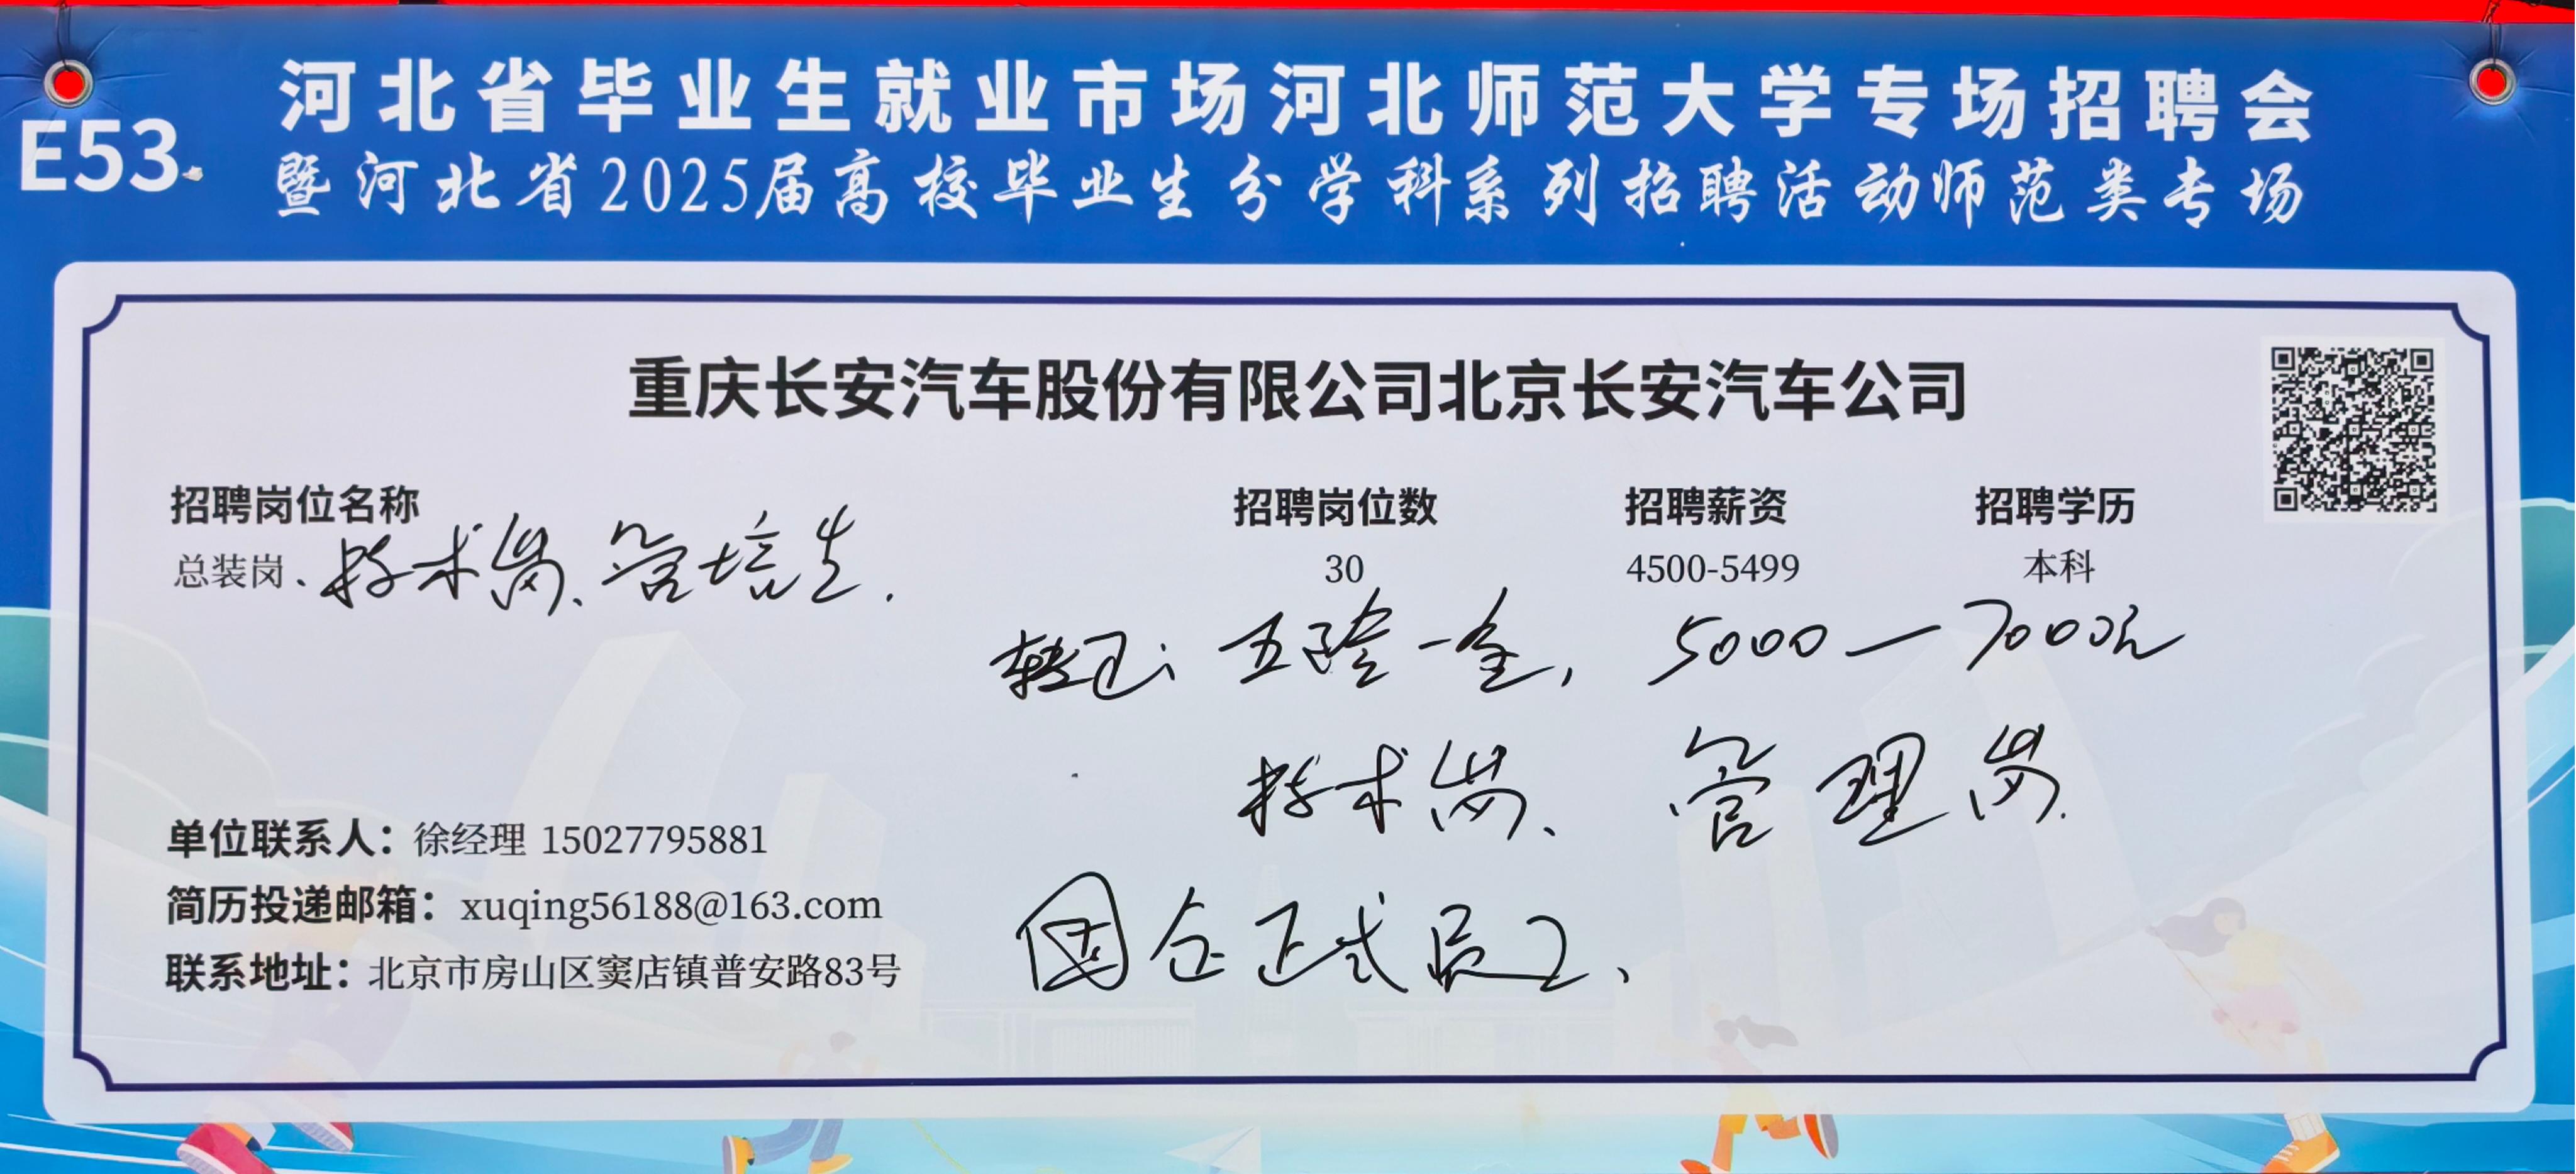 河北省毕业生就业市场河北师范大学专场招聘会
E53
暨河北省2025届高校毕业生分学科系列招聘活动师范类专场
重庆长安汽车股份有限公司北京长安汽车公司
招聘岗位名称 招聘岗位数 招聘薪资 招聘学历
总装岗、技术岗、管培生. 30 4500-5499 本科
转正: 五险一金, 5000—7000元
技术岗、管理岗.
单位联系人：徐经理 15027795881
简历投递邮箱：xuqing56188@163.com
国企正式员工、
联系地址：北京市房山区窦店镇普安路83号